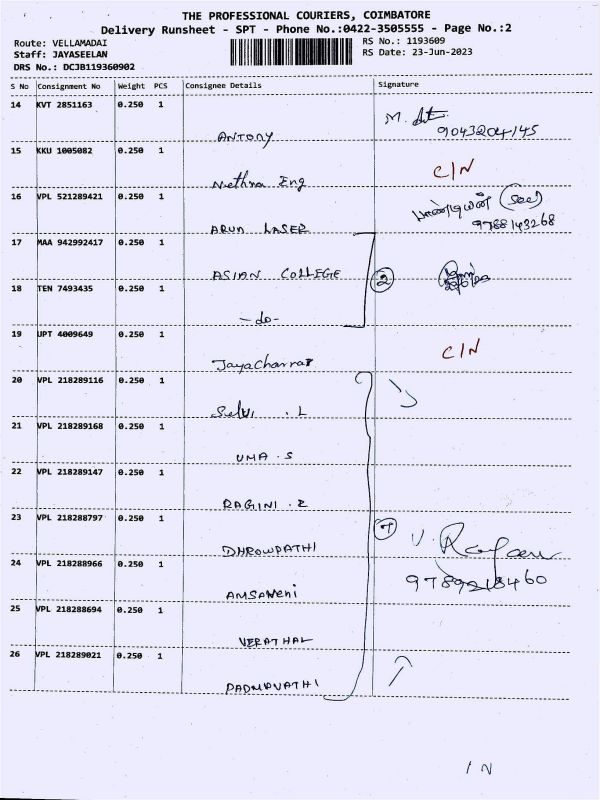 THE PROFESSIONAL COURIERS, COIMBATORE
Delivery Runsheet - SPT - Phone No.:0422-3505555 - Page No.:2
Route: VELLAMADAI
Staff: JAYASEELAN
DRS No.: DCJB119360902
RS No.: 1193609
RS Date: 23-Jun-2023
S No Consignment No Weight PCS Consignee Details Signature
14 KVT 2851163 0.250 1
ANTONY
M.
9043204145
15 KKU 1005082 0.250 1
Nethra Eng
C/N
16 VPL 521289421 0.250 1
ARUN LASER
பாண்டியன்
9788143268
17 MAA 942992417 0.250 1
ASIAN COLLEGE
2
18 TEN 7493435 0.250 1
-do-
19 UPT 4009649 0.250 1
C/N
20 VPL 218289116 0.250 1
Selvi . L
21 VPL 218289168 0.250 1
UMA . S
22 VPL 218289147 0.250 1
RAGINI . R
23 VPL 218288797 0.250 1
DHROWPATHI
7
V.
24 VPL 218288966 0.250 1
AMSAVENI
9789218460
25 VPL 218288694 0.250 1
VERATHAL
26 VPL 218289021 0.250 1
PADMAVATHI